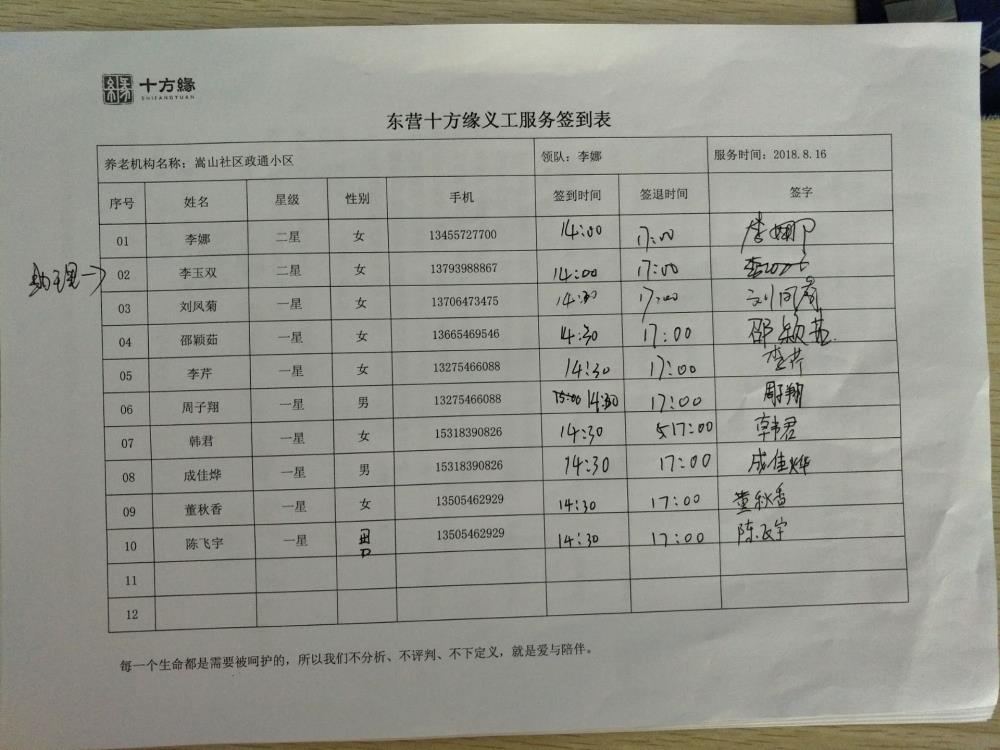 十方緣
SHIFANGYUAN
东营十方缘义工服务签到表
养老机构名称：嵩山社区政通小区 领队：李娜 服务时间：2018.8.16
序号 姓名 星级 性别 手机 签到时间 签退时间 签字
01 李娜 二星 女 13455727700 14:00 17:00 李娜
助理→ 02 李玉双 二星 女 13793988867 14:00 17:00
03 刘凤菊 一星 女 13706473475 14:30 17:00 刘凤菊
04 邵颖茹 一星 女 13665469546 14:30 17:00 邵颖茹
05 李芹 一星 女 13275466088 14:30 17:00 李芹
06 周子翔 一星 男 13275466088 15:00 14:30 17:00 周子翔
07 韩君 一星 女 15318390826 14:30 17:00 韩君
08 成佳烨 一星 男 15318390826 14:30 17:00 成佳烨
09 董秋香 一星 女 13505462929 14:30 17:00 董秋香
10 陈飞宇 一星 男 13505462929 14:30 17:00 陈飞宇
11
12
每一个生命都是需要被呵护的，所以我们不分析、不评判、不下定义，就是爱与陪伴。